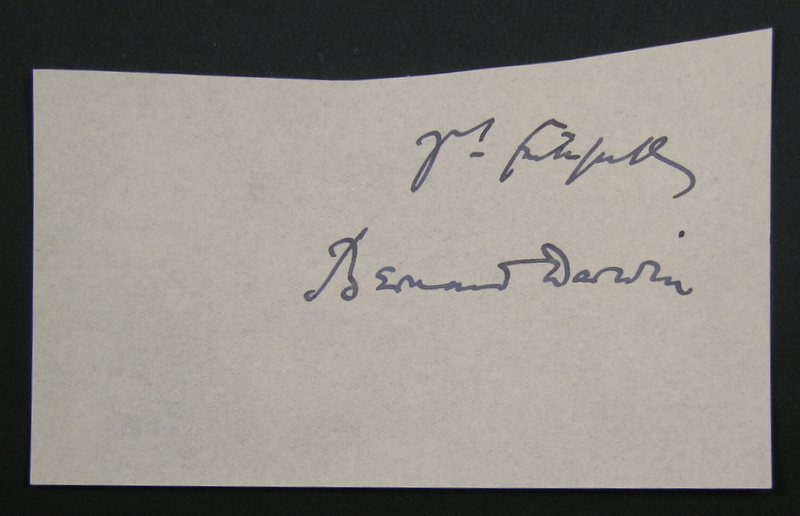 Yrs. faithfully
Bernard Darwin